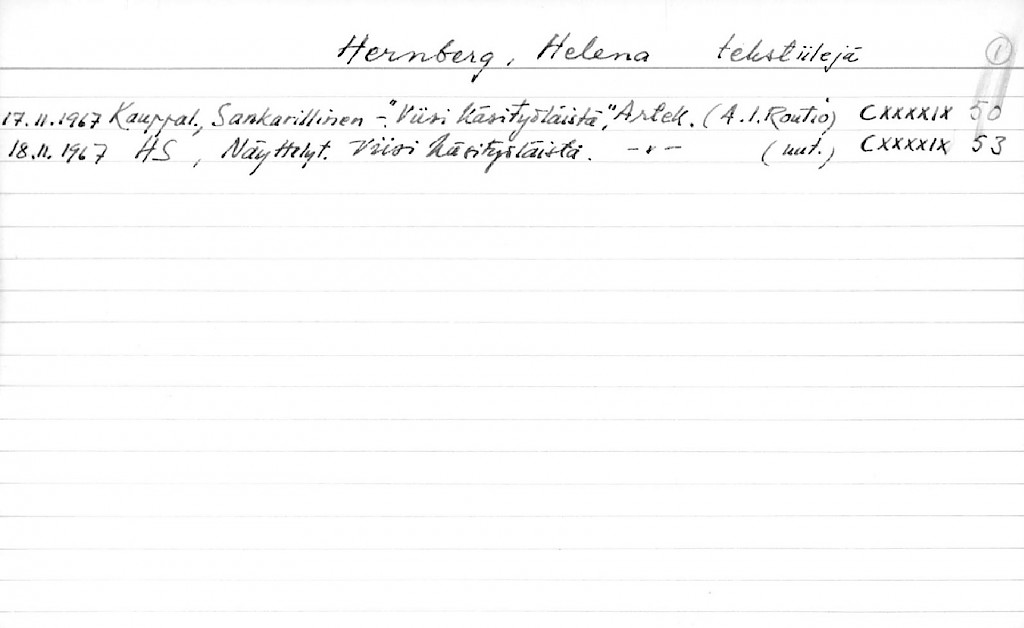 Hernberg, Helena tekstiilejä 1
17.11.1967 Kauppal., Sankarillinen - "Viisi käsityöläistä", Artek. (A.I. Routio) CXXXXIX 50
18.11.1967 HS, Näyttelyt. Viisi käsityöläistä. -"- (nut.) CXXXXIX 53